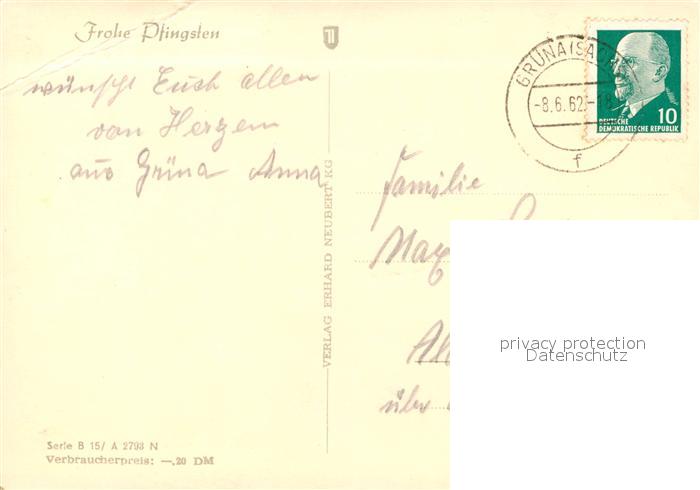 Frohe Pfingsten
wünscht Euch allen
von Herzen
aus Grüna Anna
VERLAG ERHARD NEUBERT KG
GRÜNA (SACHS)
-8.6.62.-18
f
10
DEUTSCHE
DEMOKRATISCHE REPUBLIK
Familie
Max
über
privacy protection
Datenschutz
Serie B 15/ A 2793 N
Verbraucherpreis: —.20 DM